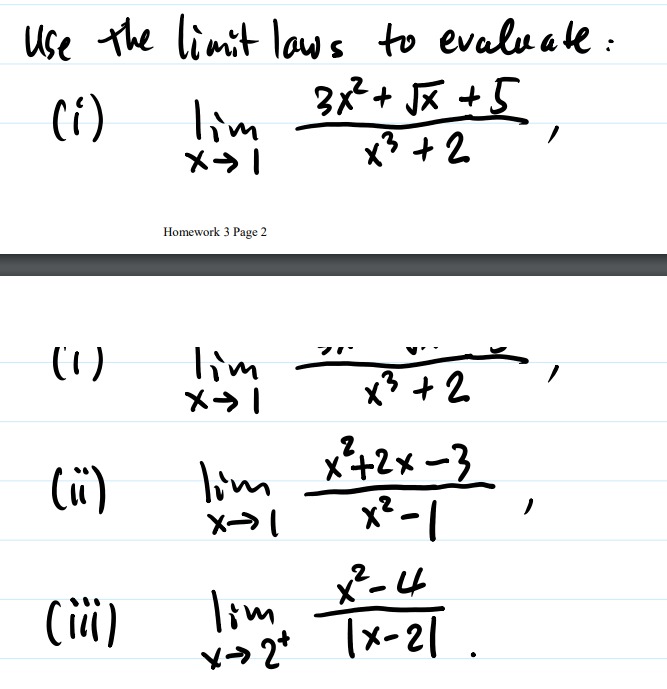 Use the limit laws to evaluate:
(i) lim x→1 (3x² + √x + 5)/(x³ + 2) ,
Homework 3 Page 2
(i) lim x→1 x³ + 2 ,
(ii) lim x→1 (x²+2x-3)/(x²-1) ,
(iii) lim x→2⁺ (x²-4)/|x-2| .